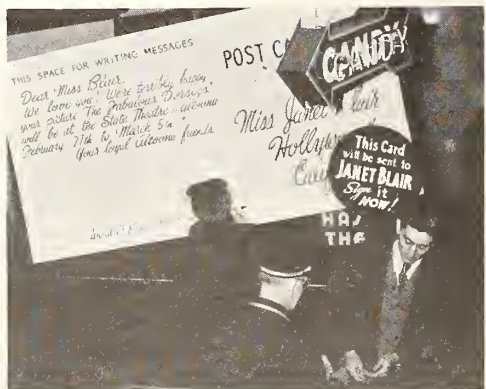 THIS SPACE FOR WRITING MESSAGES
Dear Miss Blair,
We love you! We're terribly happy
your picture "The Fabulous Dorseys"
will be at the State Theatre - Altoona
February 27th to March 5th
Your loyal Altoona friends
POST
Miss Janet Blair
Hollywood
CANDY
This Card
will be sent to
JANET BLAIR
Sign it
NOW!
HAS
THE